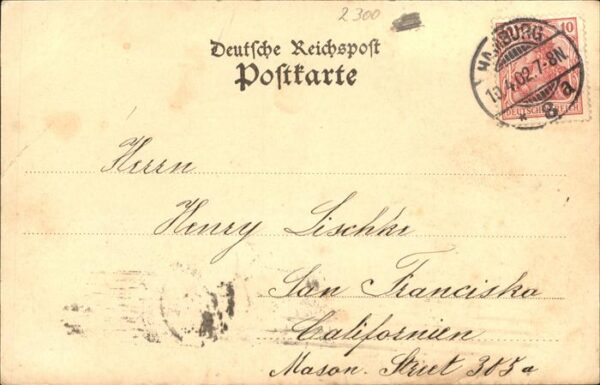 2300
Deutsche Reichspost
Postkarte
10
HAMBURG
4.02.7-8N.
* 8a
DEUTSCHES REICH
Herrn
Henry Lischke
San Francisko
Californien
Mason. Street 305a